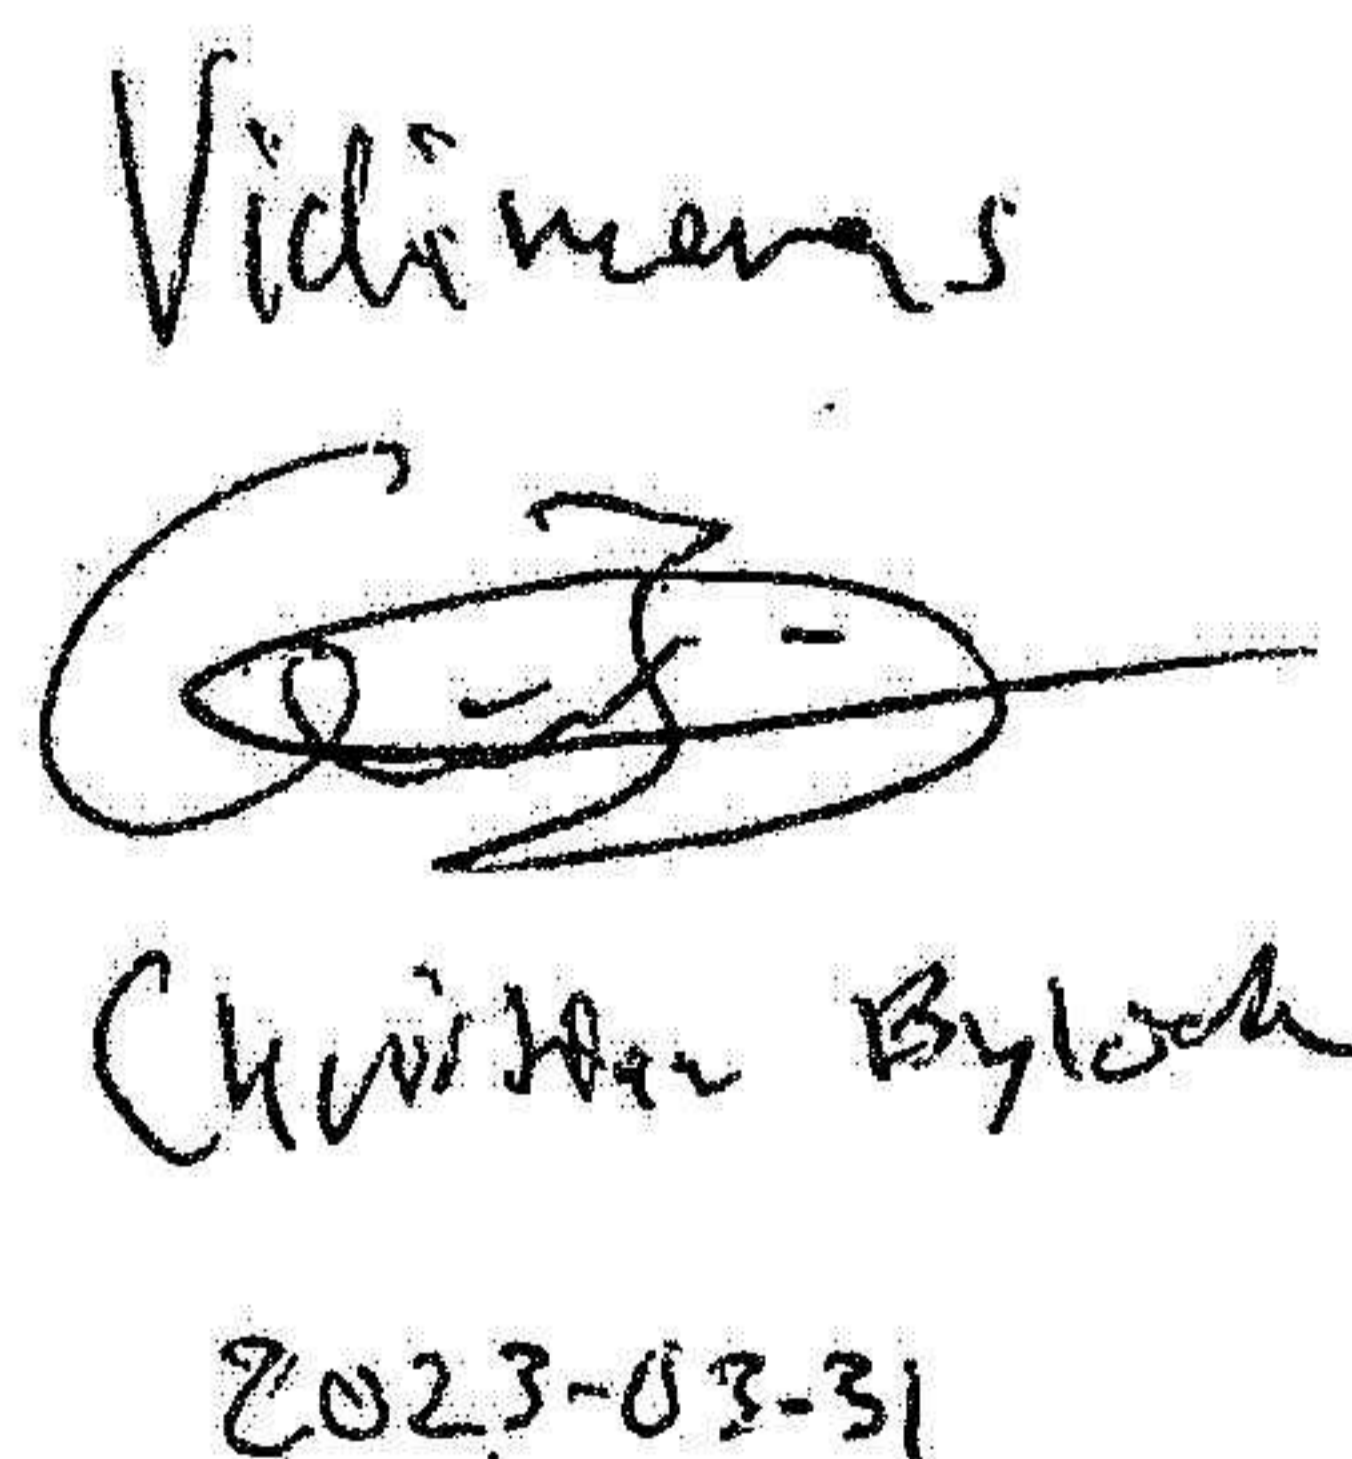 Vidimeras
Christian Bylock
2023-03-31